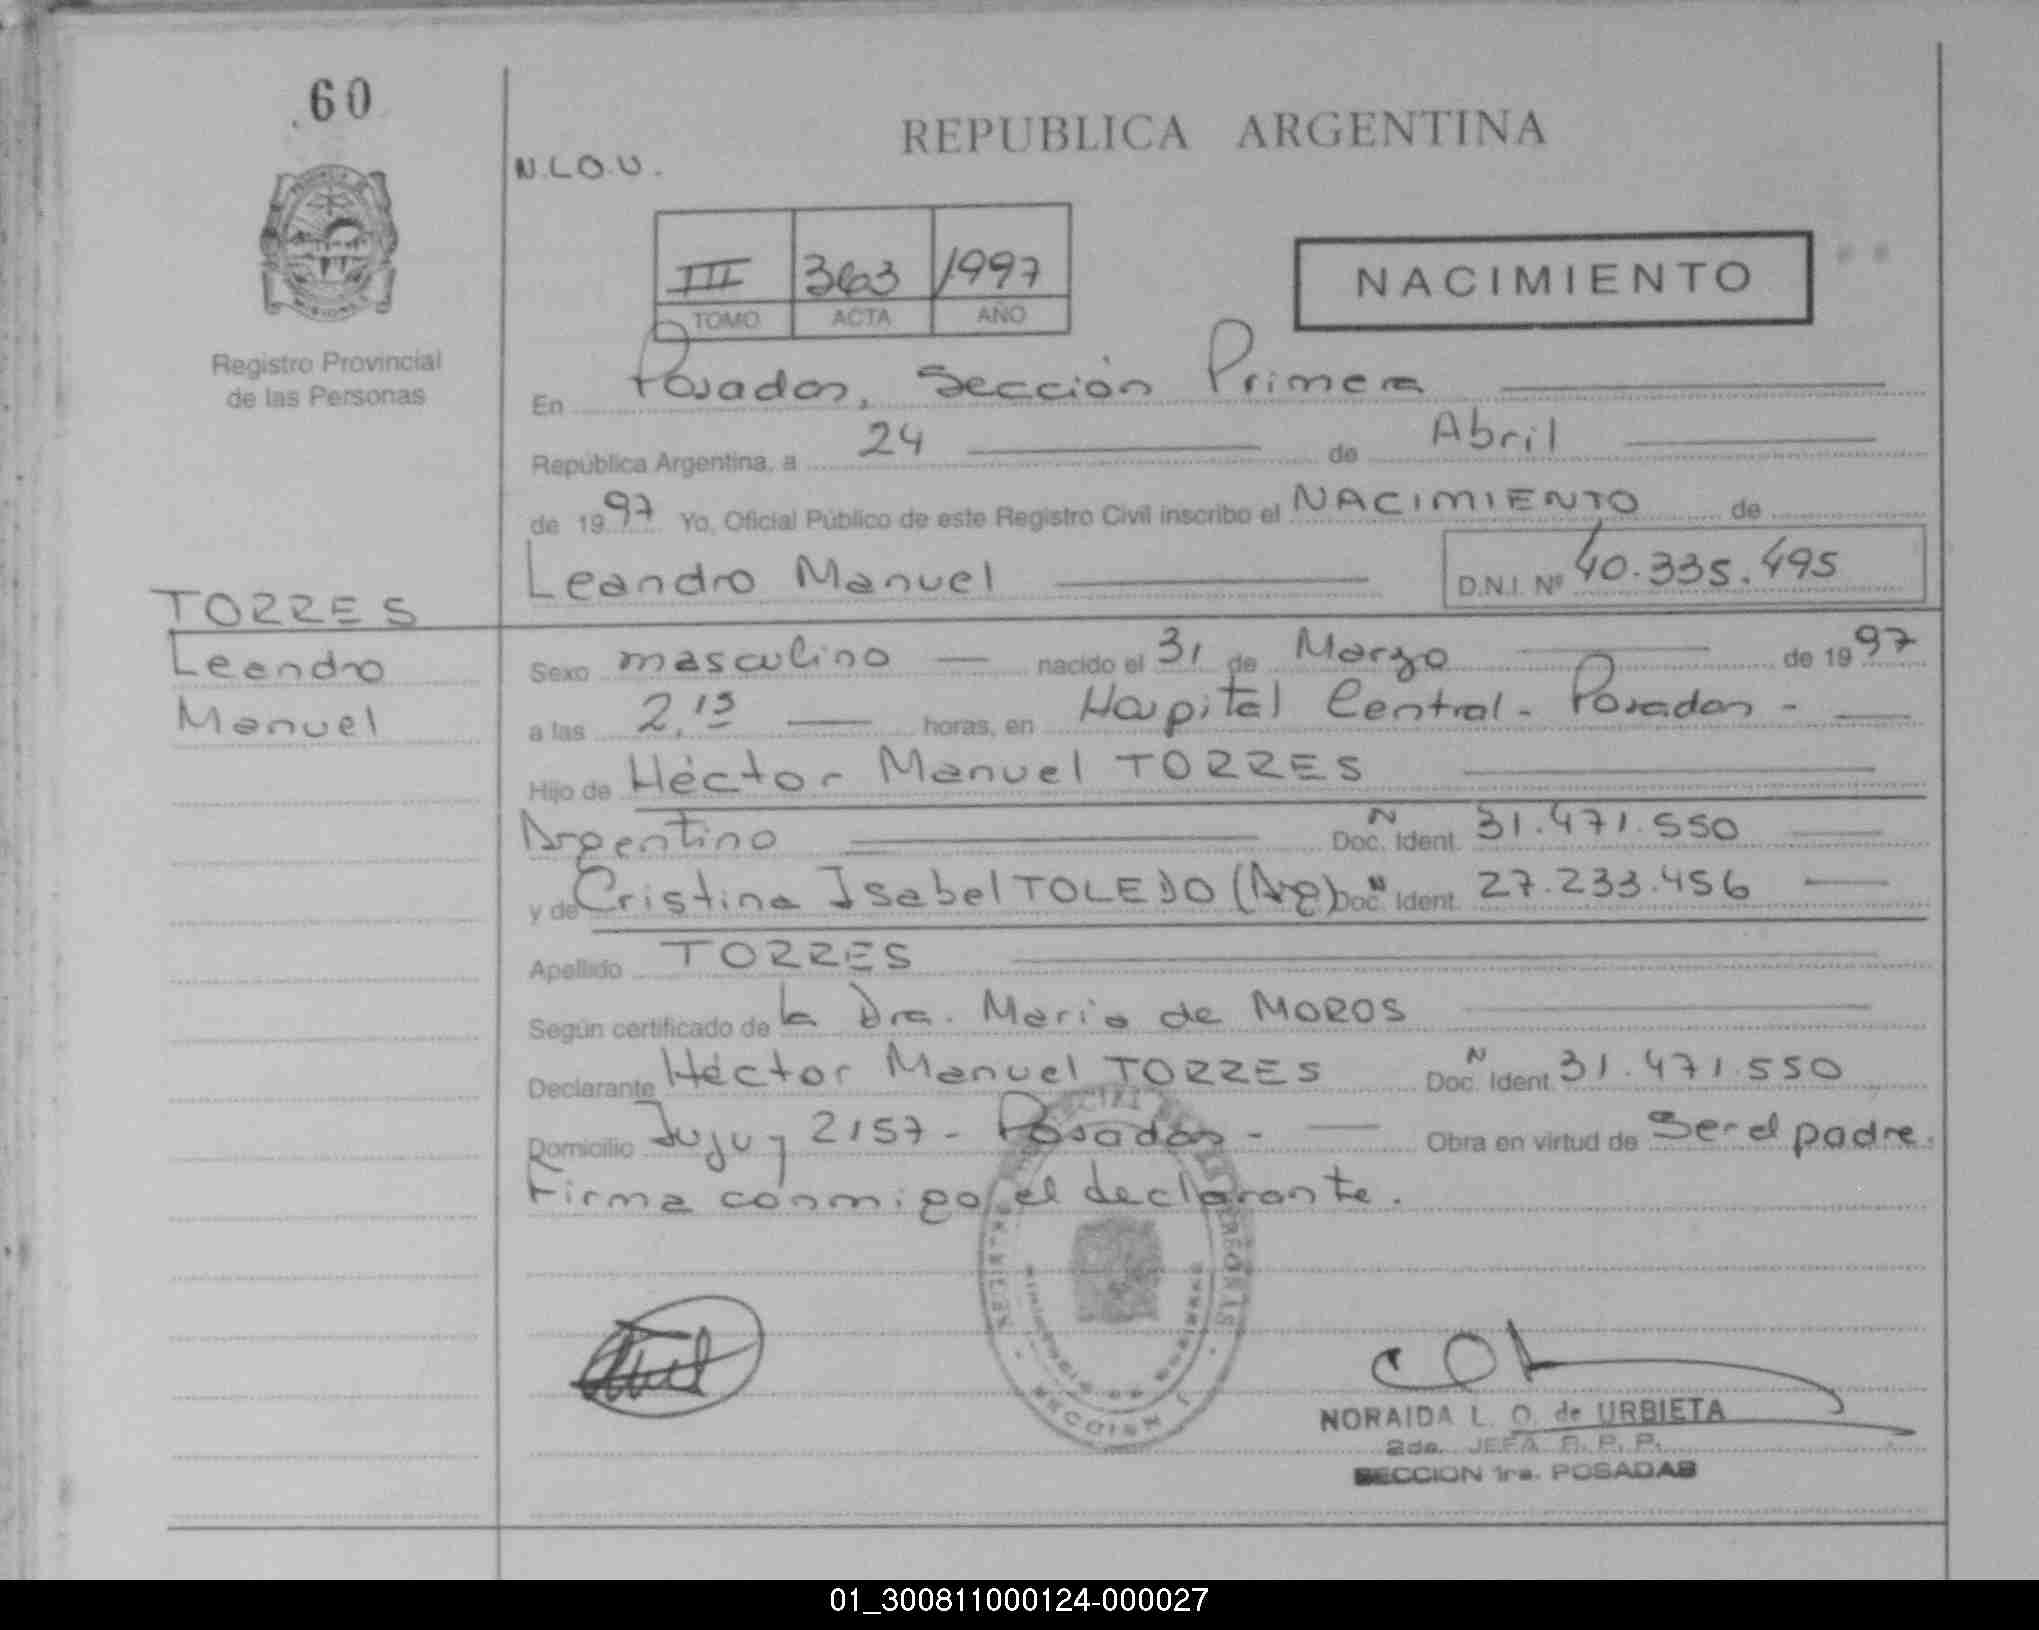 60
REPUBLICA ARGENTINA
N.L.O.U.
III 363 1997
TOMO ACTA AÑO
NACIMIENTO
Registro Provincial
de las Personas
En Posadas, Sección Primera
República Argentina, a 24 de Abril
de 1997 Yo, Oficial Público de este Registro Civil inscribo el NACIMIENTO de
Leandro Manuel D.N.I. Nº 40.335.495
TORRES
Leandro
Manuel
Sexo masculino nacido el 31 de Marzo de 1997
a las 2,15 horas, en Hospital Central - Posadas -
Hijo de Héctor Manuel TORRES
Argentino Doc. N Ident. 31.471.550
y de Cristina Isabel TOLEDO (Arg) Doc. N Ident. 27.233.456
Apellido TORRES
Según certificado de la Dra. María de MOROS
Declarante Héctor Manuel TORRES Doc. N Ident. 31.471.550
Domicilio Jujuy 2157 - Posadas - Obra en virtud de Ser el padre.
Firma conmigo el declarante.
SECCION 1
NORAIDA L. O. de URBIETA
2da. JEFA R. P. P.
SECCION 1ra. POSADAS
01_300811000124-000027